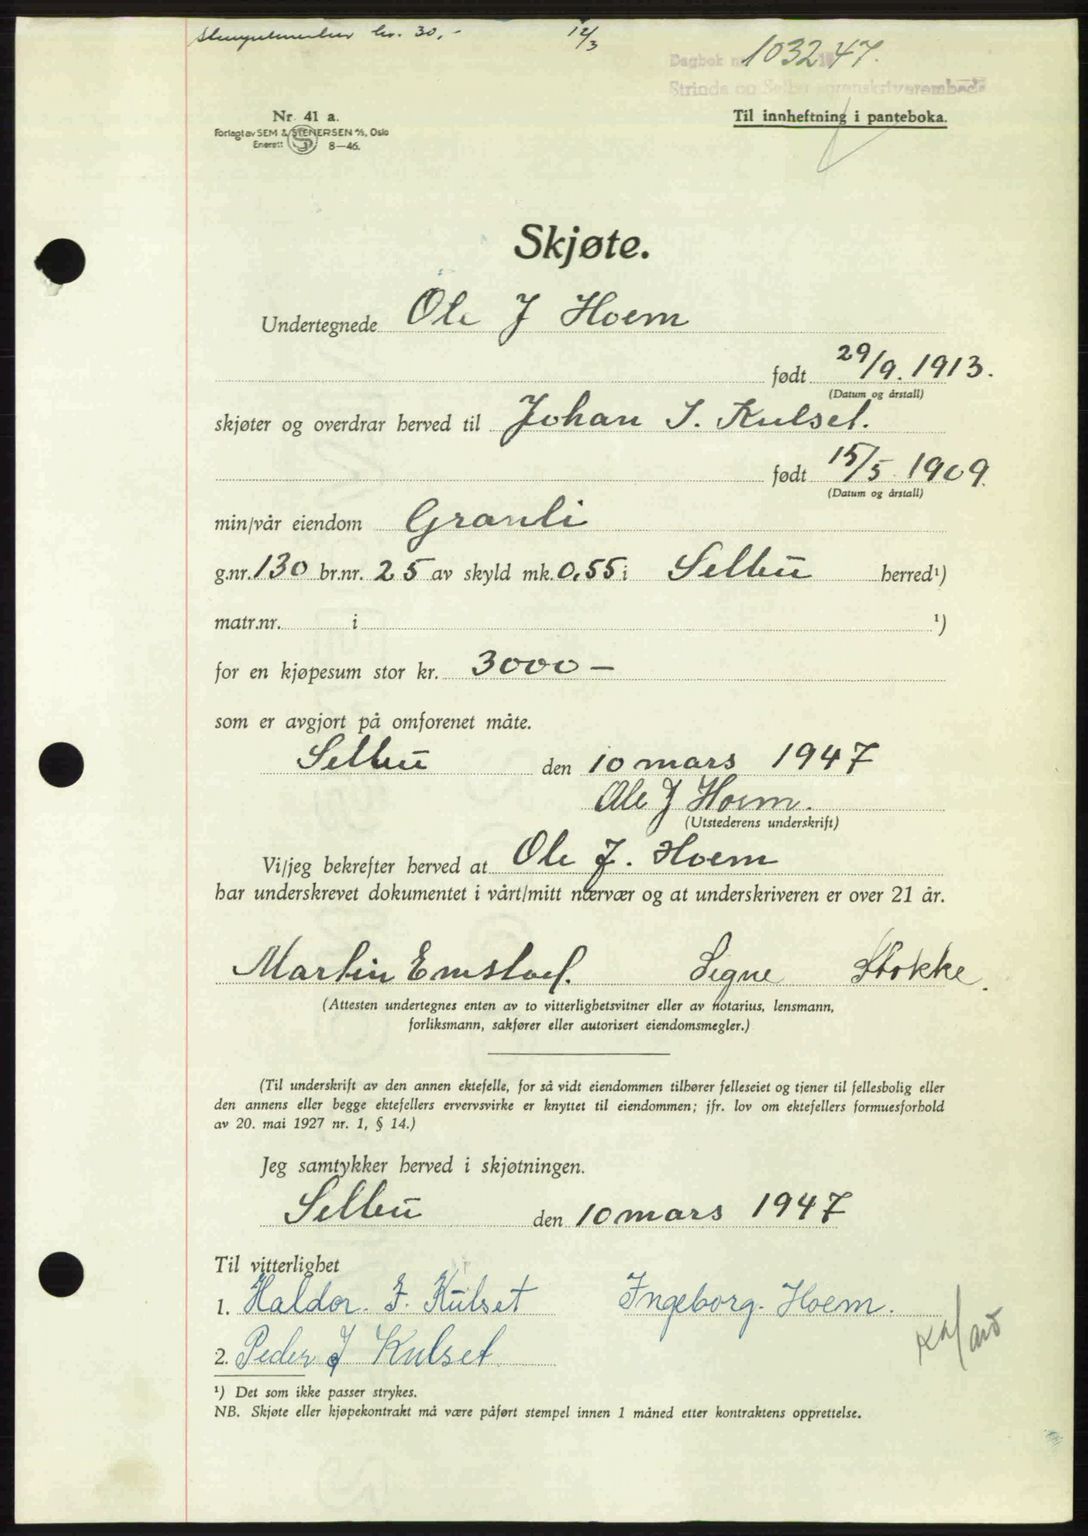 Stempelmerker kr. 30,- 12/3
Dagbok nr. 1032/47.
Strinda og Selbu sorenskriverembede
Nr. 41 a.
Forlagt av SEM & STENERSEN A/S, Oslo
Enerett 8—46.
Til innheftning i panteboka.
Skjøte.
Undertegnede Ole J Hoem
født 29/9. 1913.
(Datum og årstall)
skjøter og overdrar herved til Johan J. Kulset.
født 15/5 1909.
(Datum og årstall)
min/vår eiendom Granli
g.nr. 130 br.nr. 25 av skyld mk. 0,55 i Selbu herred¹)
matr.nr. i ¹)
for en kjøpesum stor kr. 3000 —
som er avgjort på omforenet måte.
Selbu den 10 mars 1947
Ole J Hoem.
(Utstederens underskrift)
Vi/jeg bekrefter herved at Ole J. Hoem
har underskrevet dokumentet i vårt/mitt nærvær og at underskriveren er over 21 år.
Martin Emstad. Signe Stokke.
(Attesten undertegnes enten av to vitterlighetsvitner eller av notarius, lensmann,
forliksmann, sakfører eller autorisert eiendomsmegler.)
(Til underskrift av den annen ektefelle, for så vidt eiendommen tilhører felleseiet og tjener til fellesbolig eller
den annens eller begge ektefellers ervervsvirke er knyttet til eiendommen; jfr. lov om ektefellers formuesforhold
av 20. mai 1927 nr. 1, § 14.)
Jeg samtykker herved i skjøtningen.
Selbu den 10 mars 1947
Til vitterlighet
1. Haldor. F. Kulset Ingeborg. Hoem.
2. Peder J Kulset.
¹) Det som ikke passer strykes.
NB. Skjøte eller kjøpekontrakt må være påført stempel innen 1 måned etter kontraktens opprettelse.